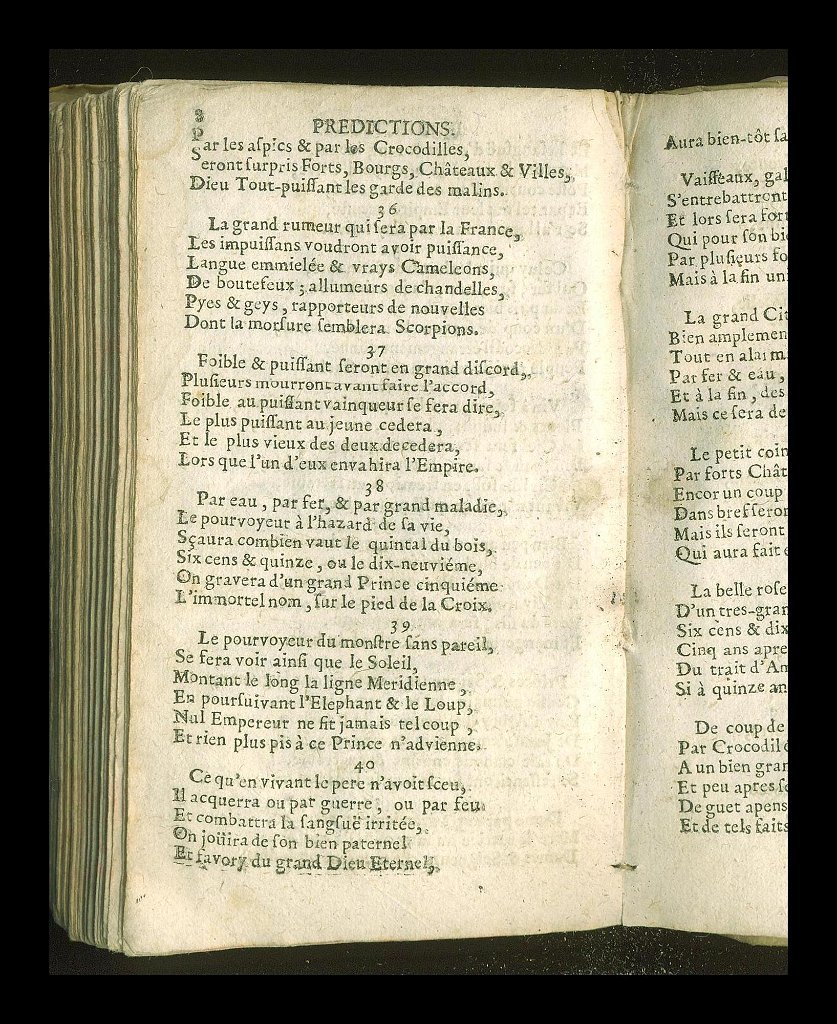 8
PREDICTIONS.
Par les aſpics & par les Crocodilles,
Seront ſurpris Forts, Bourgs, Châteaux & Villes,
Dieu Tout-puiſſant les garde des malins.
36
La grand rumeur qui ſera par la France,
Les impuiſſans voudront avoir puiſſance,
Langue emmielée & vrays Cameleons,
De boutefeux ; allumeurs de chandelles,
Pyes & geys, rapporteurs de nouvelles
Dont la morſure ſemblera Scorpions.
37
Foible & puiſſant ſeront en grand diſcord,
Pluſieurs mourront avant faire l'accord,
Foible au puiſſant vainqueur ſe fera dire,
Le plus puiſſant au jeune cedera,
Et le plus vieux des deux decedera,
Lors que l'un d'eux envahira l'Empire.
38
Par eau, par fer, & par grand maladie,
Le pourvoyeur à l'hazard de ſa vie,
Sçaura combien vaut le quintal du bois,
Six cens & quinze, ou le dix-neuviéme,
On gravera d'un grand Prince cinquiéme
L'immortel nom, ſur le pied de la Croix.
39
Le pourvoyeur du monſtre ſans pareil,
Se fera voir ainſi que le Soleil,
Montant le long la ligne Meridienne,
En pourſuivant l'Elephant & le Loup,
Nul Empereur ne fit jamais tel coup,
Et rien plus pis à ce Prince n'advienne.
40
Ce qu'en vivant le pere n'avoit ſceu,
Il acquerra ou par guerre, ou par feu
Et combattra la ſangſuë irritée,
On joüira de ſon bien paternel
Et favory du grand Dieu Eternel,
Aura bien-tôt ſa
Vaiſſeaux, gal
S'entrebattront
Et lors ſera fort
Qui pour ſon bi
Par pluſieurs fo
Mais à la fin uni
La grand Cit
Bien amplemen
Tout en alarm
Par fer & eau,
Et à la fin, des
Mais ce ſera de
Le petit coin
Par forts Chât
Encor un coup
Dans bref ſeron
Mais ils ſeront
Qui aura fait
La belle roſe
D'un tres-gran
Six cens & dix
Cinq ans apre
Du trait d'Am
Si à quinze an
De coup de
Par Crocodile
A un bien gran
Et peu apres ſe
De guet apens
Et de tels faits